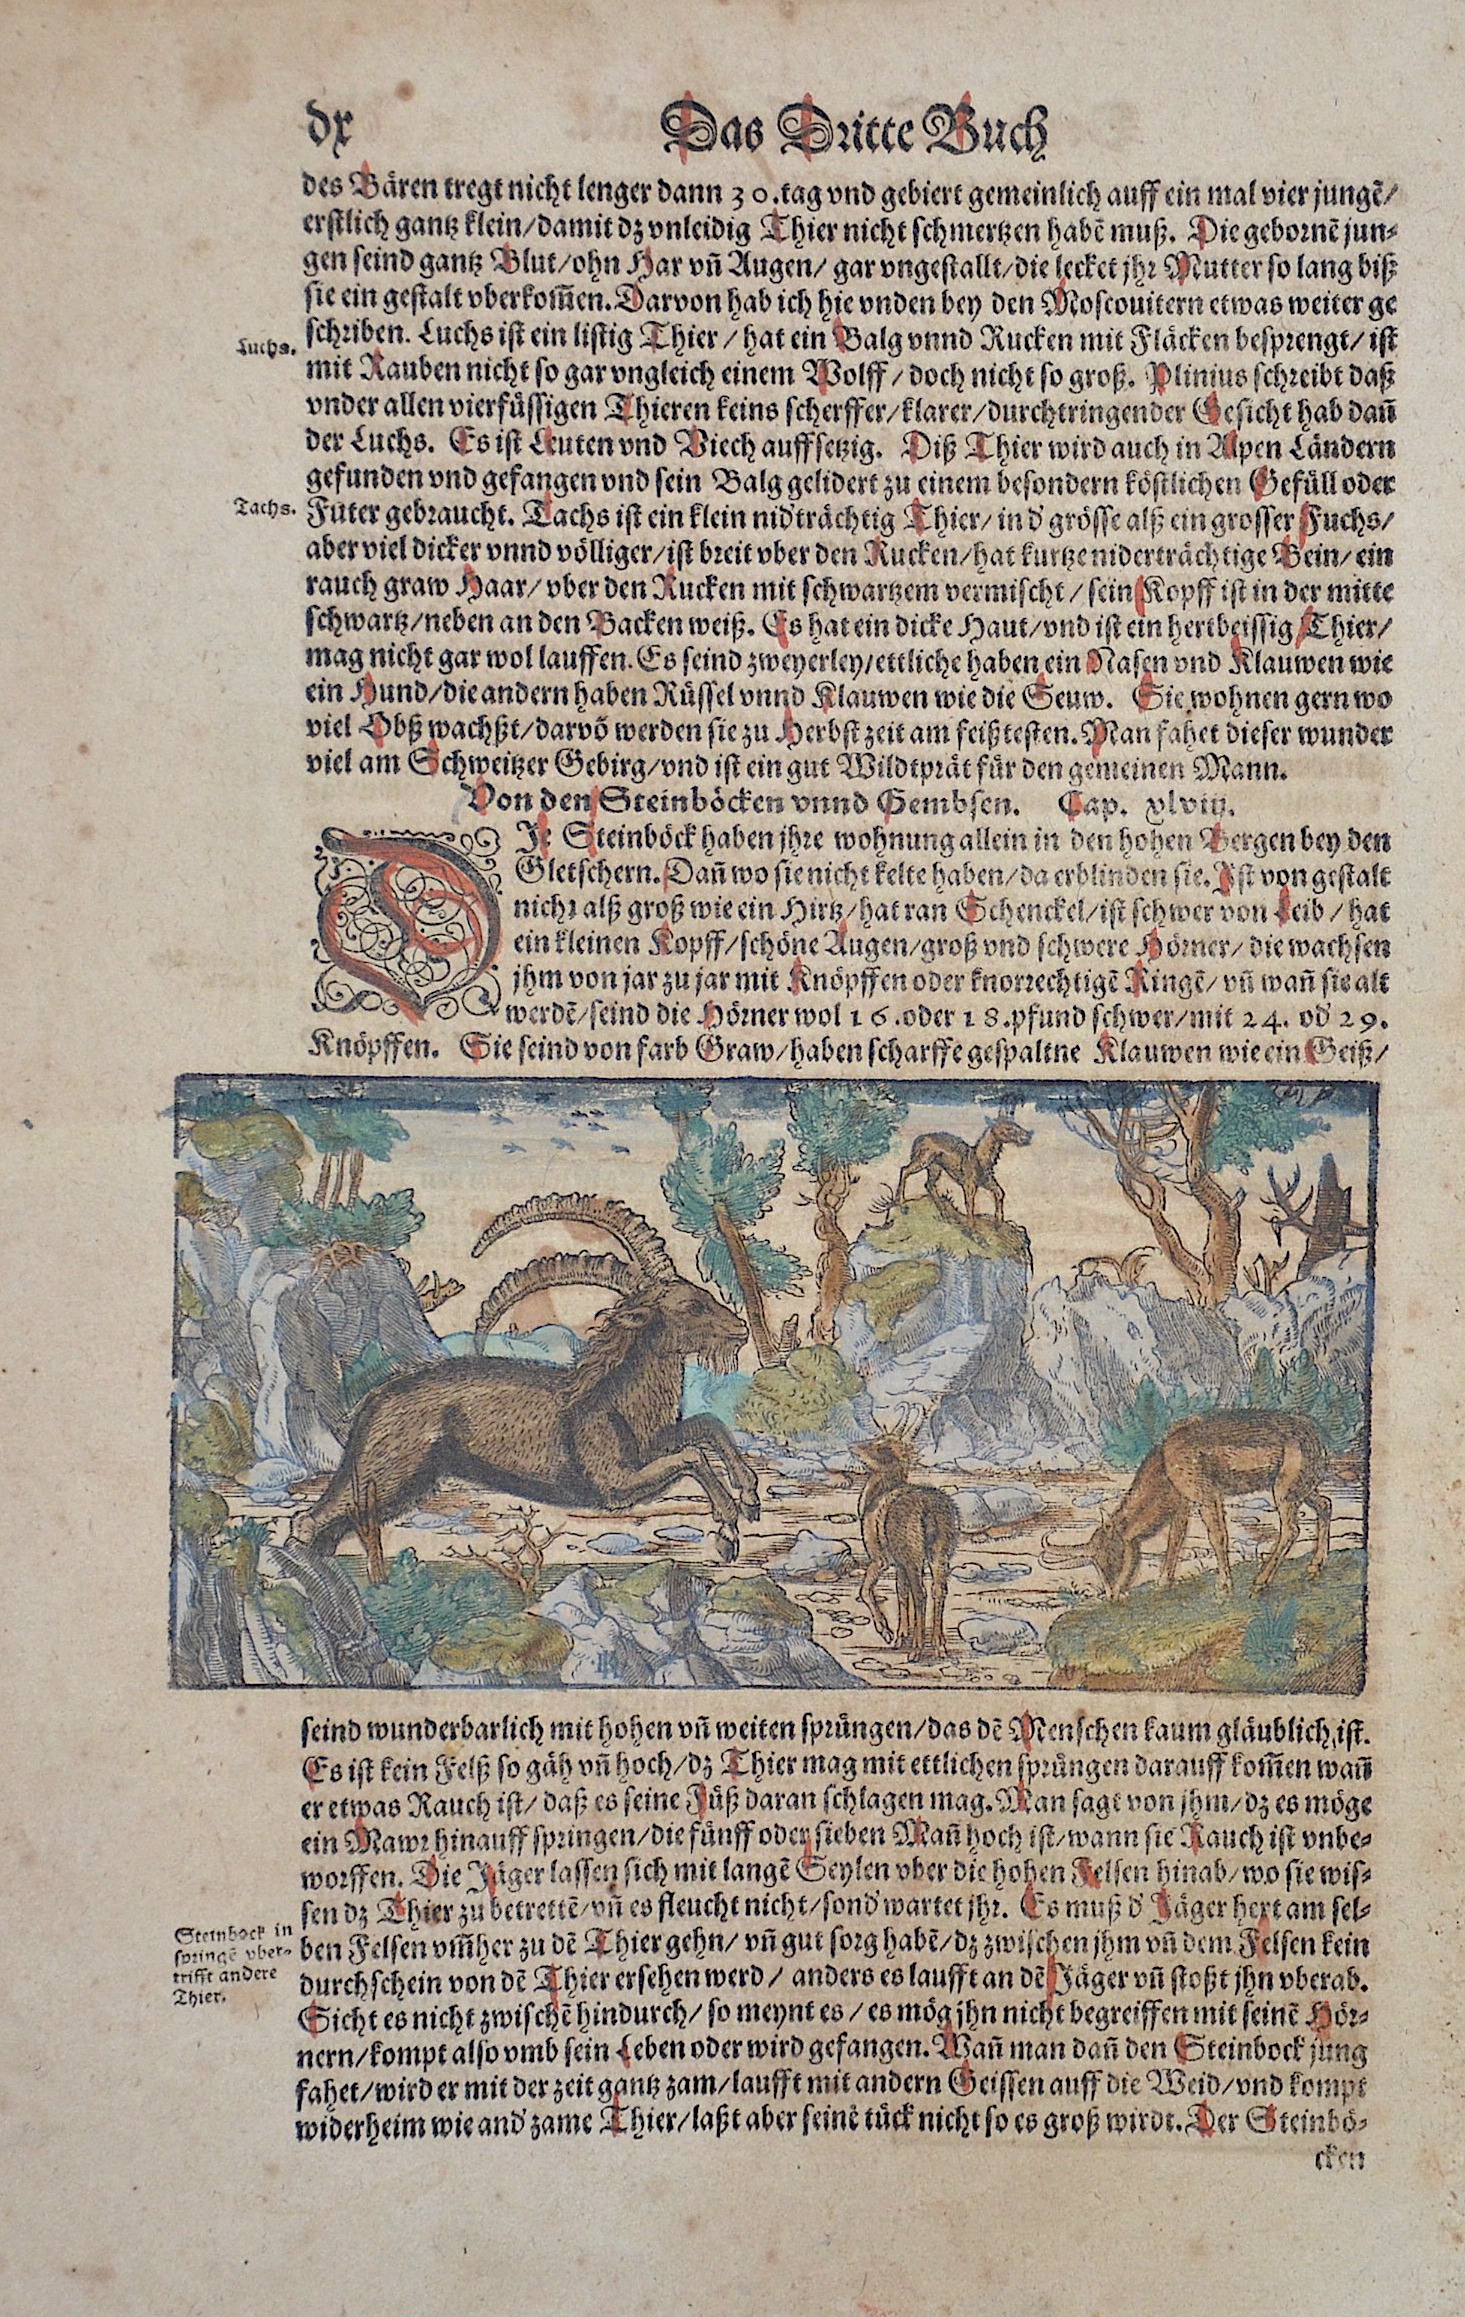 dx
Das Dritte Buch
des Bären tregt nicht lenger dann 30. tag vnd gebiert gemeinlich auff ein mal vier jungẽ/
erstlich gantz klein/damit dz vnleidig Thier nicht schmertzen habẽ muß. Die gebornẽ jun-
gen seind gantz Blut/ohn Har vñ Augen/ gar vngestallt/die lecket jhr Mutter so lang biß
sie ein gestalt vberkom̃en. Darvon hab ich hie vnden bey den Moscouitern etwas weiter ge
Luchs.
schriben. Luchs ist ein listig Thier / hat ein Balg vnnd Rucken mit Fläcken besprengt/ ist
mit Rauben nicht so gar vngleich einem Wolff / doch nicht so groß. Plinius schreibt daß
vnder allen vierfüssigen Thieren keins scherffer/klarer/durchtringender Gesicht hab dañ
der Luchs. Es ist Leuten vnd Viech auffsetzig. Diß Thier wird auch in Alpen Ländern
gefunden vnd gefangen vnd sein Balg gelidert zu einem besondern köstlichen Gefüll oder
Tachs.
Futer gebraucht. Tachs ist ein klein nid'trächtig Thier/ in d' grösse alß ein grosser Fuchs/
aber viel dicker vnnd völliger/ist breit vber den Rucken/hat kurtze niderträchtige Bein/ ein
rauch graw Haar/ vber den Rucken mit schwartzem vermischt / sein Kopff ist in der mitte
schwartz/neben an den Backen weiß. Es hat ein dicke Haut/vnd ist ein hertbeissig Thier/
mag nicht gar wol lauffen. Es seind zweyerley/ettliche haben ein Nasen vnd Klauwen wie
ein Hund/die andern haben Rüssel vnnd Klauwen wie die Seuw. Sie wohnen gern wo
viel Obß wachßt/darvõ werden sie zu Herbst zeit am feißtesten. Man fahet dieser wunder
viel am Schweitzer Gebirg/vnd ist ein gut Wildtprät für den gemeinen Mann.
Von den Steinböcken vnnd Gembsen. Cap. xlviij.
DIe Steinböck haben jhre wohnung allein in den hohen Bergen bey den
Gletschern. Dañ wo sie nicht kelte haben/da erblinden sie. Ist von gestalt
nicht alß groß wie ein Hirtz/hat ran Schenckel/ist schwer von Leib / hat
ein kleinen Kopff/schöne Augen/groß vnd schwere Hörner/ die wachsen
jhm von jar zu jar mit Knöpffen oder knorrechtigẽ Ringẽ/ vñ wañ sie alt
werdẽ/seind die Hörner wol 16. oder 18. pfund schwer/mit 24. od' 29.
Knöpffen. Sie seind von farb Graw/haben scharffe gespaltne Klauwen wie ein Geiß/
seind wunderbarlich mit hohen vñ weiten sprüngen/das dẽ Menschen kaum gläublich ist.
Es ist kein Felß so gäh vñ hoch/dz Thier mag mit ettlichen sprüngen darauff kom̃en wañ
er etwas Rauch ist/ daß es seine Füß daran schlagen mag. Man sagt von jhm/dz es möge
ein Mawr hinauff springen/die fünff oder sieben Mañ hoch ist/wann sie Rauch ist vnbe-
worffen. Die Jäger lassen sich mit langẽ Seylen vber die hohen Felsen hinab/wo sie wis-
sen dz Thier zu betrettẽ/vñ es fleucht nicht/sond' wartet jhr. Es muß d' Jäger hert am sel-
Steinbock in
springẽ vber-
trifft andere
Thier.
ben Felsen vm̃her zu dẽ Thier gehn/ vñ gut sorg habẽ/dz zwischen jhm vñ dem Felsen kein
durchschein von dẽ Thier ersehen werd / anders es laufft an dẽ Jäger vñ stoßt jhn vberab.
Sicht es nicht zwischẽ hindurch/ so meynt es / es mög jhn nicht begreiffen mit seinẽ Hör-
nern/kompt also vmb sein Leben oder wird gefangen. Wañ man dañ den Steinbock jung
fahet/wird er mit der zeit gantz zam/laufft mit andern Geissen auff die Weid/vnd kompt
widerheim wie and' zame Thier/laßt aber seinẽ tück nicht so es groß wirdt. Der Steinbö-
cken